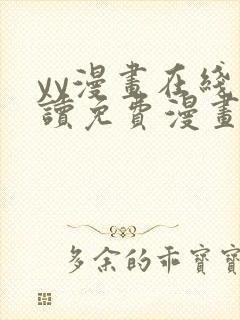 yy漫畫在綫
讀免費漫畫
多余的乖寶寶